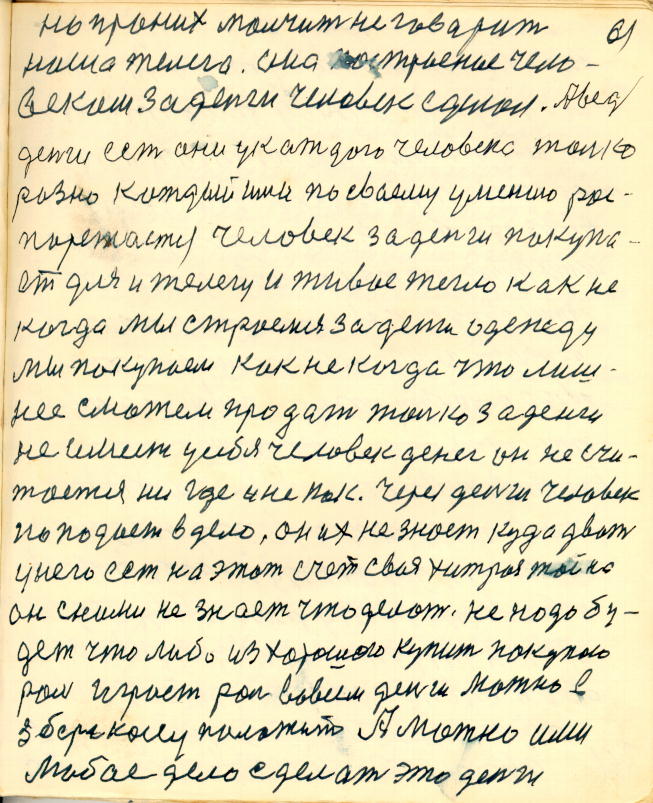 но проних молчит не говарит 61
наша телега. она построение чело-
веком за денги человек сделал. Авед
денги сет они укаждого человека толко
разно каждый ими посваему умению рас-
поряжается человек заденги покупа-
ет для и телегу и живое тегло как не
когда мы строемся за денги одежду
мы покупаем как некогда что лиш-
нее сможем продат толко заденги
не имеет усебя человек денег он не счи-
тается ни где и не как. Через денги человек
поподает вдело, он их не знает куда дват
унего сет на этот счет своя хитрая тайна
он сними не знает что делат. не надо бу-
дет что либо из хорошого купит покупаю
рол играет рол вовсем денги можно в
зберкассу положить А можно ими
любое дело сделат это денги